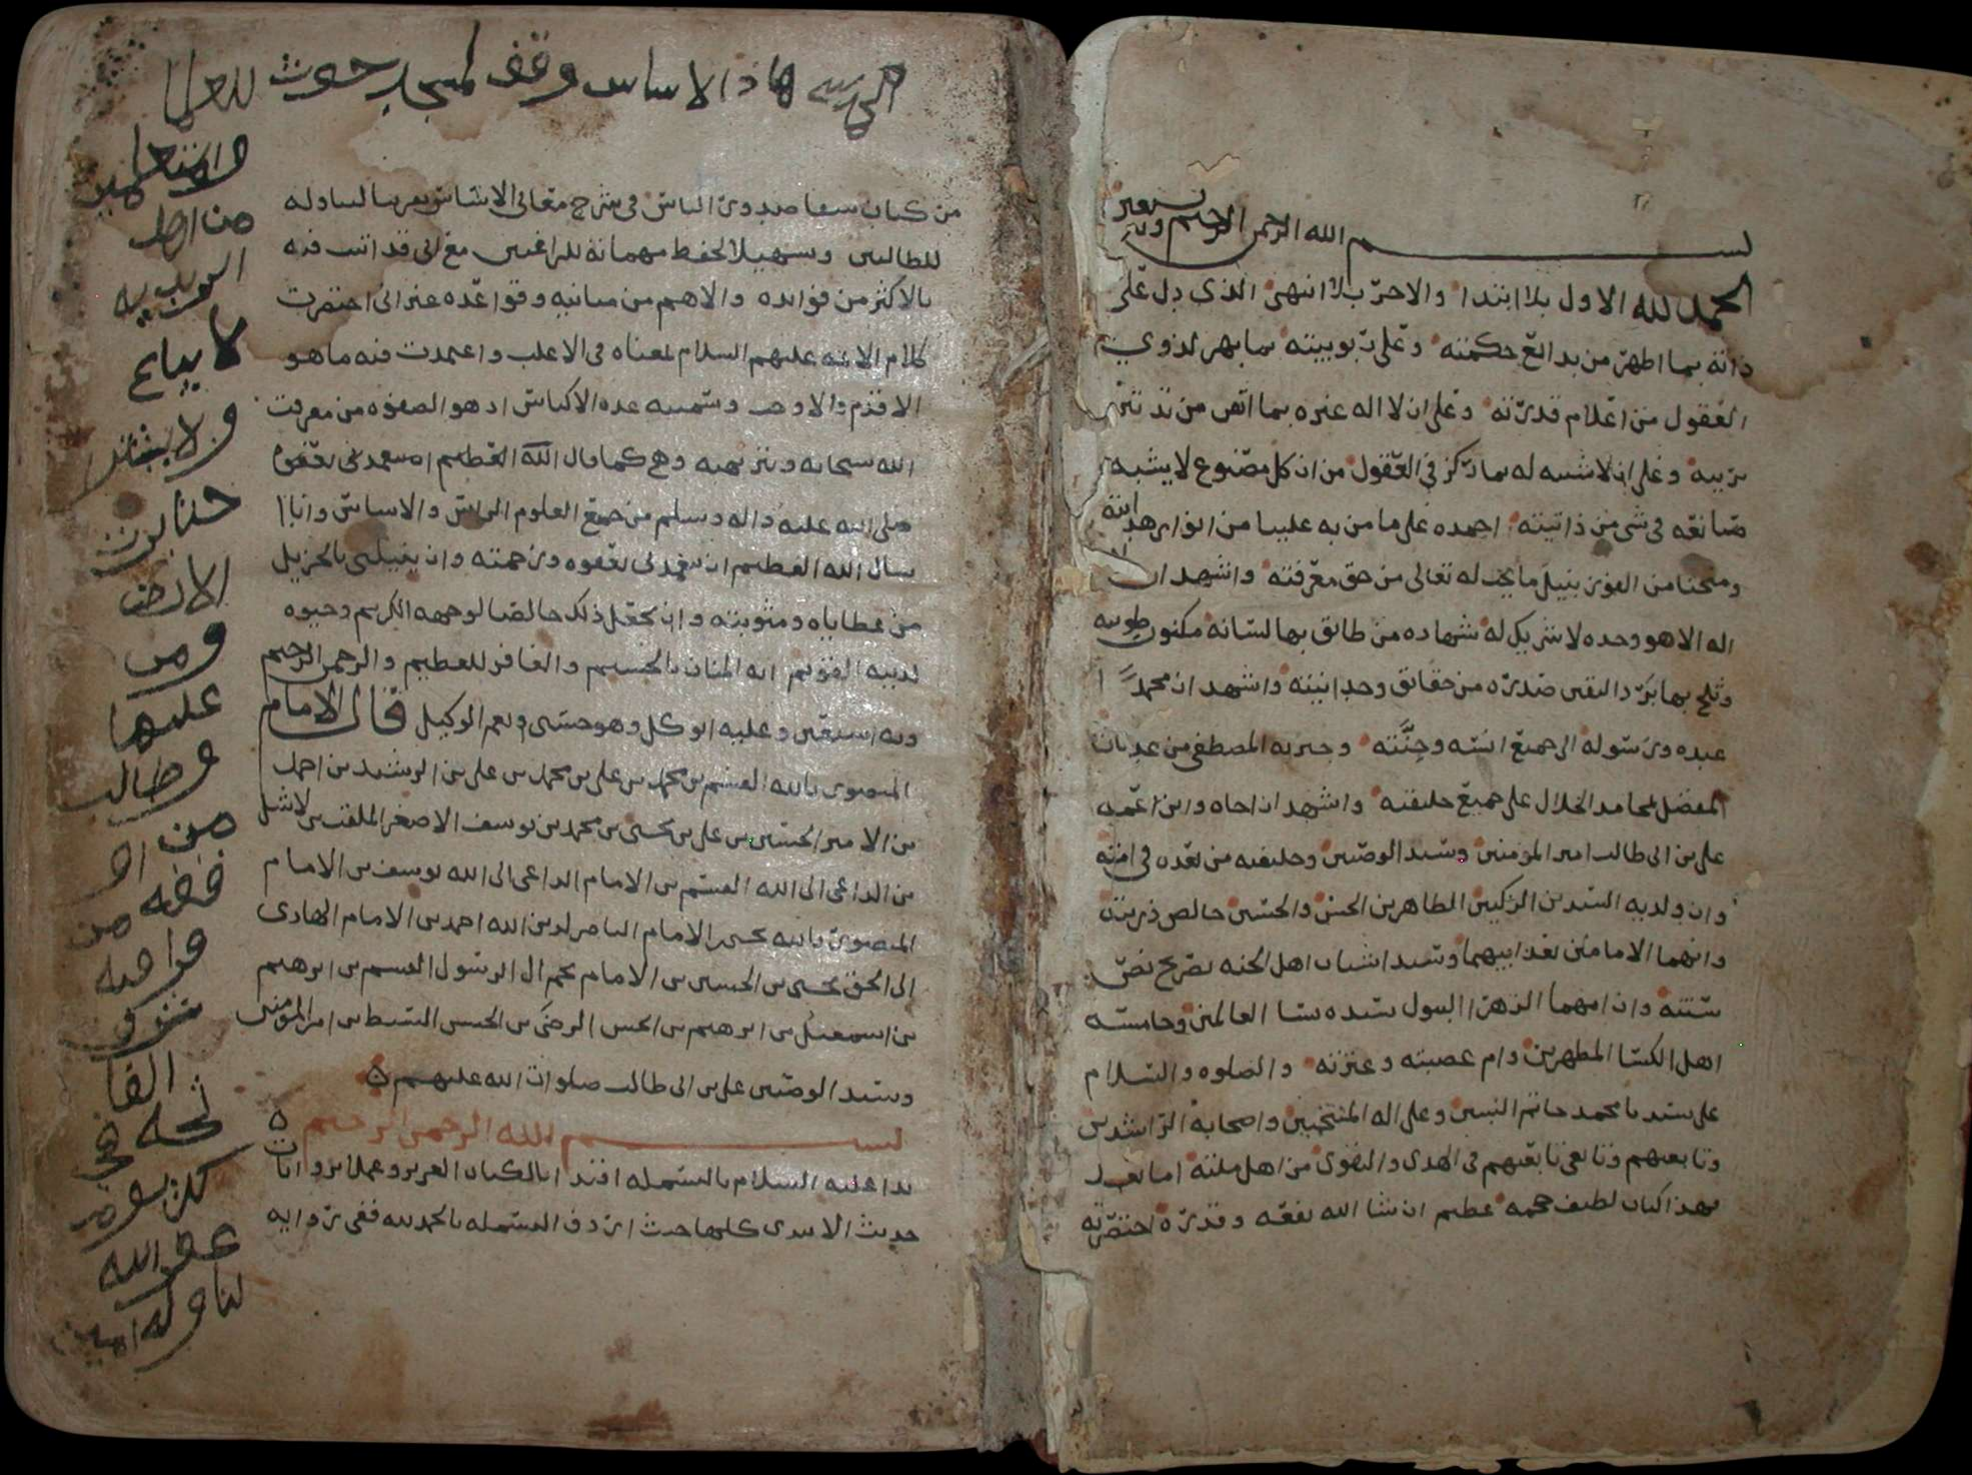 بســـم الله الرحمن الرحيم وبه نستعين
الحمد لله الاول بلا ابتدا والاخر بلا انتهى الذي دل على
ذاته بما اظهر من بدائع حكمته وعلى ربوبيته بما بهر لذوي
العقول من اعلام قدرته وعلى ان لا اله غيره بما اتص من تدبير
بريته وعلى ان لا شبيه له بما ركز في العقول من ان كل مصنوع لا يشبه
صانعه في شي من ذاتيته احمده على ما من به علينا من انوار هدايته
ومنحنا من الفوز بنيل ما يجب له تعالى من حق معرفته واشهد ان لا
اله الا هو وحده لا شريك له شهاده من طابق بها لسانه مكنون طويته
وثلج بها برد اليقين صدره من حقائق وحدانيته واشهد ان محمدا
عبده ورسوله الى جميع انسه وجنته وخيرته المصطفى من عدنان
المفضل بمحامد الخلال على جميع خليقته واشهد ان اخاه وابن عمه
علي بن ابي طالب امير المومنين وسيد الوصيين وخليفته من بعده في امته
وان ولديه السيدين الزكيين الطاهرين الحسن والحسين خالص ذريته
وانهما الامامان بعد ابيهما وسيدا شباب اهل الجنه بصريح نص
سنته وان امهما الزهرا البتول سيده نسا العالمين وخامسة
اهل الكسا المطهرين وام عصبته وعترته والصلوه والسلام
على سيدنا محمد خاتم النبيين وعلى اله المنتجبين واصحابه الراشدين
وتابعيهم وتابعي تابعيهم في الهدى والتقوى من اهل ملته اما بعد
فهذا كتاب لطيف حجمه عظيم ان شا الله نفعه وقدره اختصرته
هاذا الاساس وقف لمسجد حوث للعلما
والمتعلمين
من اهل
الزيدية
لا يباع
ولا يشترى
حتا يرث
الارض
ومن
عليها
وطالب
من
فقه من
الفا
تحه في
كل يوم
عفى الله
لنا وله امين
من كتاب شفا صدور الناس في شرح معاني الاساس تقريبا لتناوله
للطالبين وتسهيلا لحفظ مهماته للراغبين مع اني قد اتيت فيه
بالاكثر من فوائده والاهم من مبانيه وقواعده غير اني اختصرت
كلام الائمه عليهم السلام لمعناه في الاغلب واعتمدت فيه ما هو
الاقدم والاوجب وسميته عدة الاكياس اذ هو الصفوه من معرفة
الله سبحانه وتنزيهه وهي كما قال
صلى الله عليه واله وسلم من جميع العلوم الراس والاساس وانا
اسال الله العظيم ان يتغمدني بعفوه ورحمته وان ينيلني بالجزيل
من عطاياه ومثوبته وان يجعل ذلك خالصا لوجهه الكريم وحبوه
لديه القويم انه المنان بالجسيم والغافر للعظيم والرحمن الرحيم
وبه استعين وعليه اتوكل وهو حسبي ونعم الوكيل قال الامام
المنصور بالله القسم بن محمد بن علي بن محمد بن علي بن الرشيد بن احمد
بن الامير الحسين بن علي بن يحيى بن محمد بن يوسف الاصغر الملقب بن الاشل
بن الداعي الى الله القسم بن الامام الداعي الى الله يوسف بن الامام
المنصور بالله يحيى بن الامام الناصر لدين الله احمد بن الامام الهادي
الى الحق يحيى بن الحسين بن الامام نجم ال الرسول القسم بن ابرهيم
بن اسمعيل بن ابرهيم بن الحسن الرضي بن الحسن السبط بن امير المومنين
وسيد الوصيين علي بن ابي طالب صلوات الله عليهم
بســـم الله الرحمن الرحيم
بدا عليه السلام بالبسمله اقتدا بالكتاب العزيز وعملا بروايات
حديث الابتدى كلها حيث اردف البسمله بالحمد لله ففي روايه